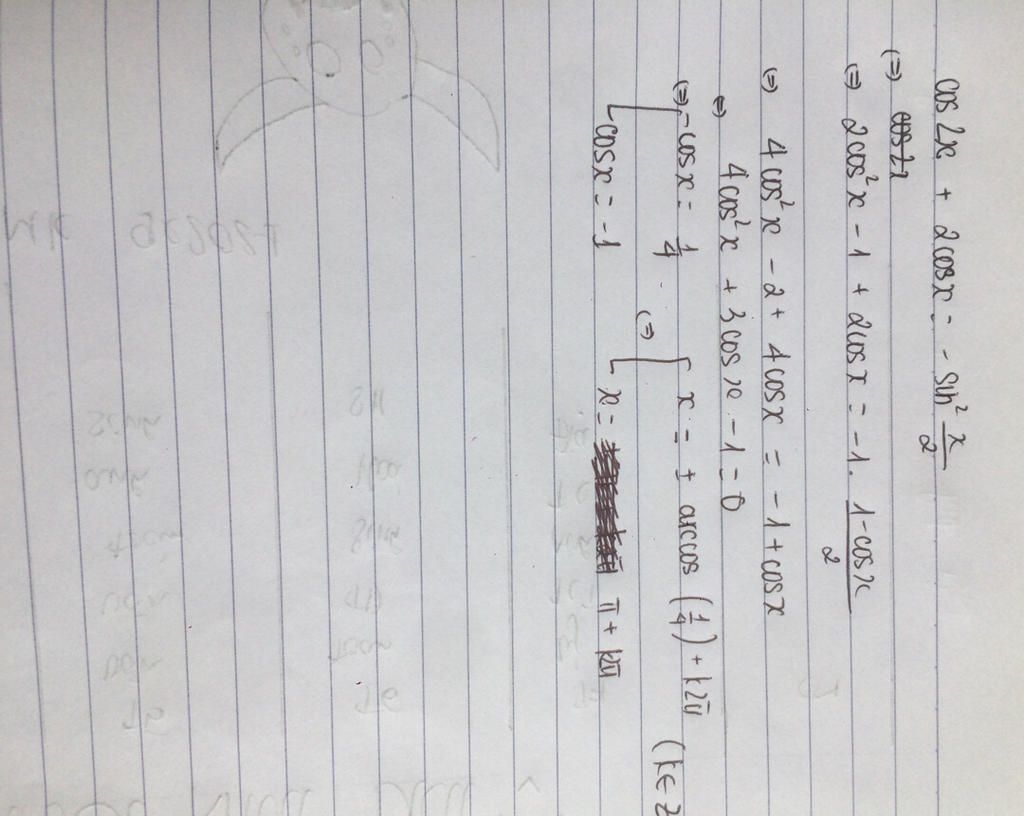 cos 2x + 2cosx = - sin² x/2
(=) cos2x
(=) 2cos²x - 1 + 2cosx = -1. (1-cosx)/2
(=) 4cos²x - 2 + 4cosx = -1+cosx
(=) 4cos²x + 3cosx - 1 = 0
(=) [ cosx = 1/4 (=) [ x = ± arccos (1/4) + k2π (k∈Z
cosx = -1 x = π + kπ